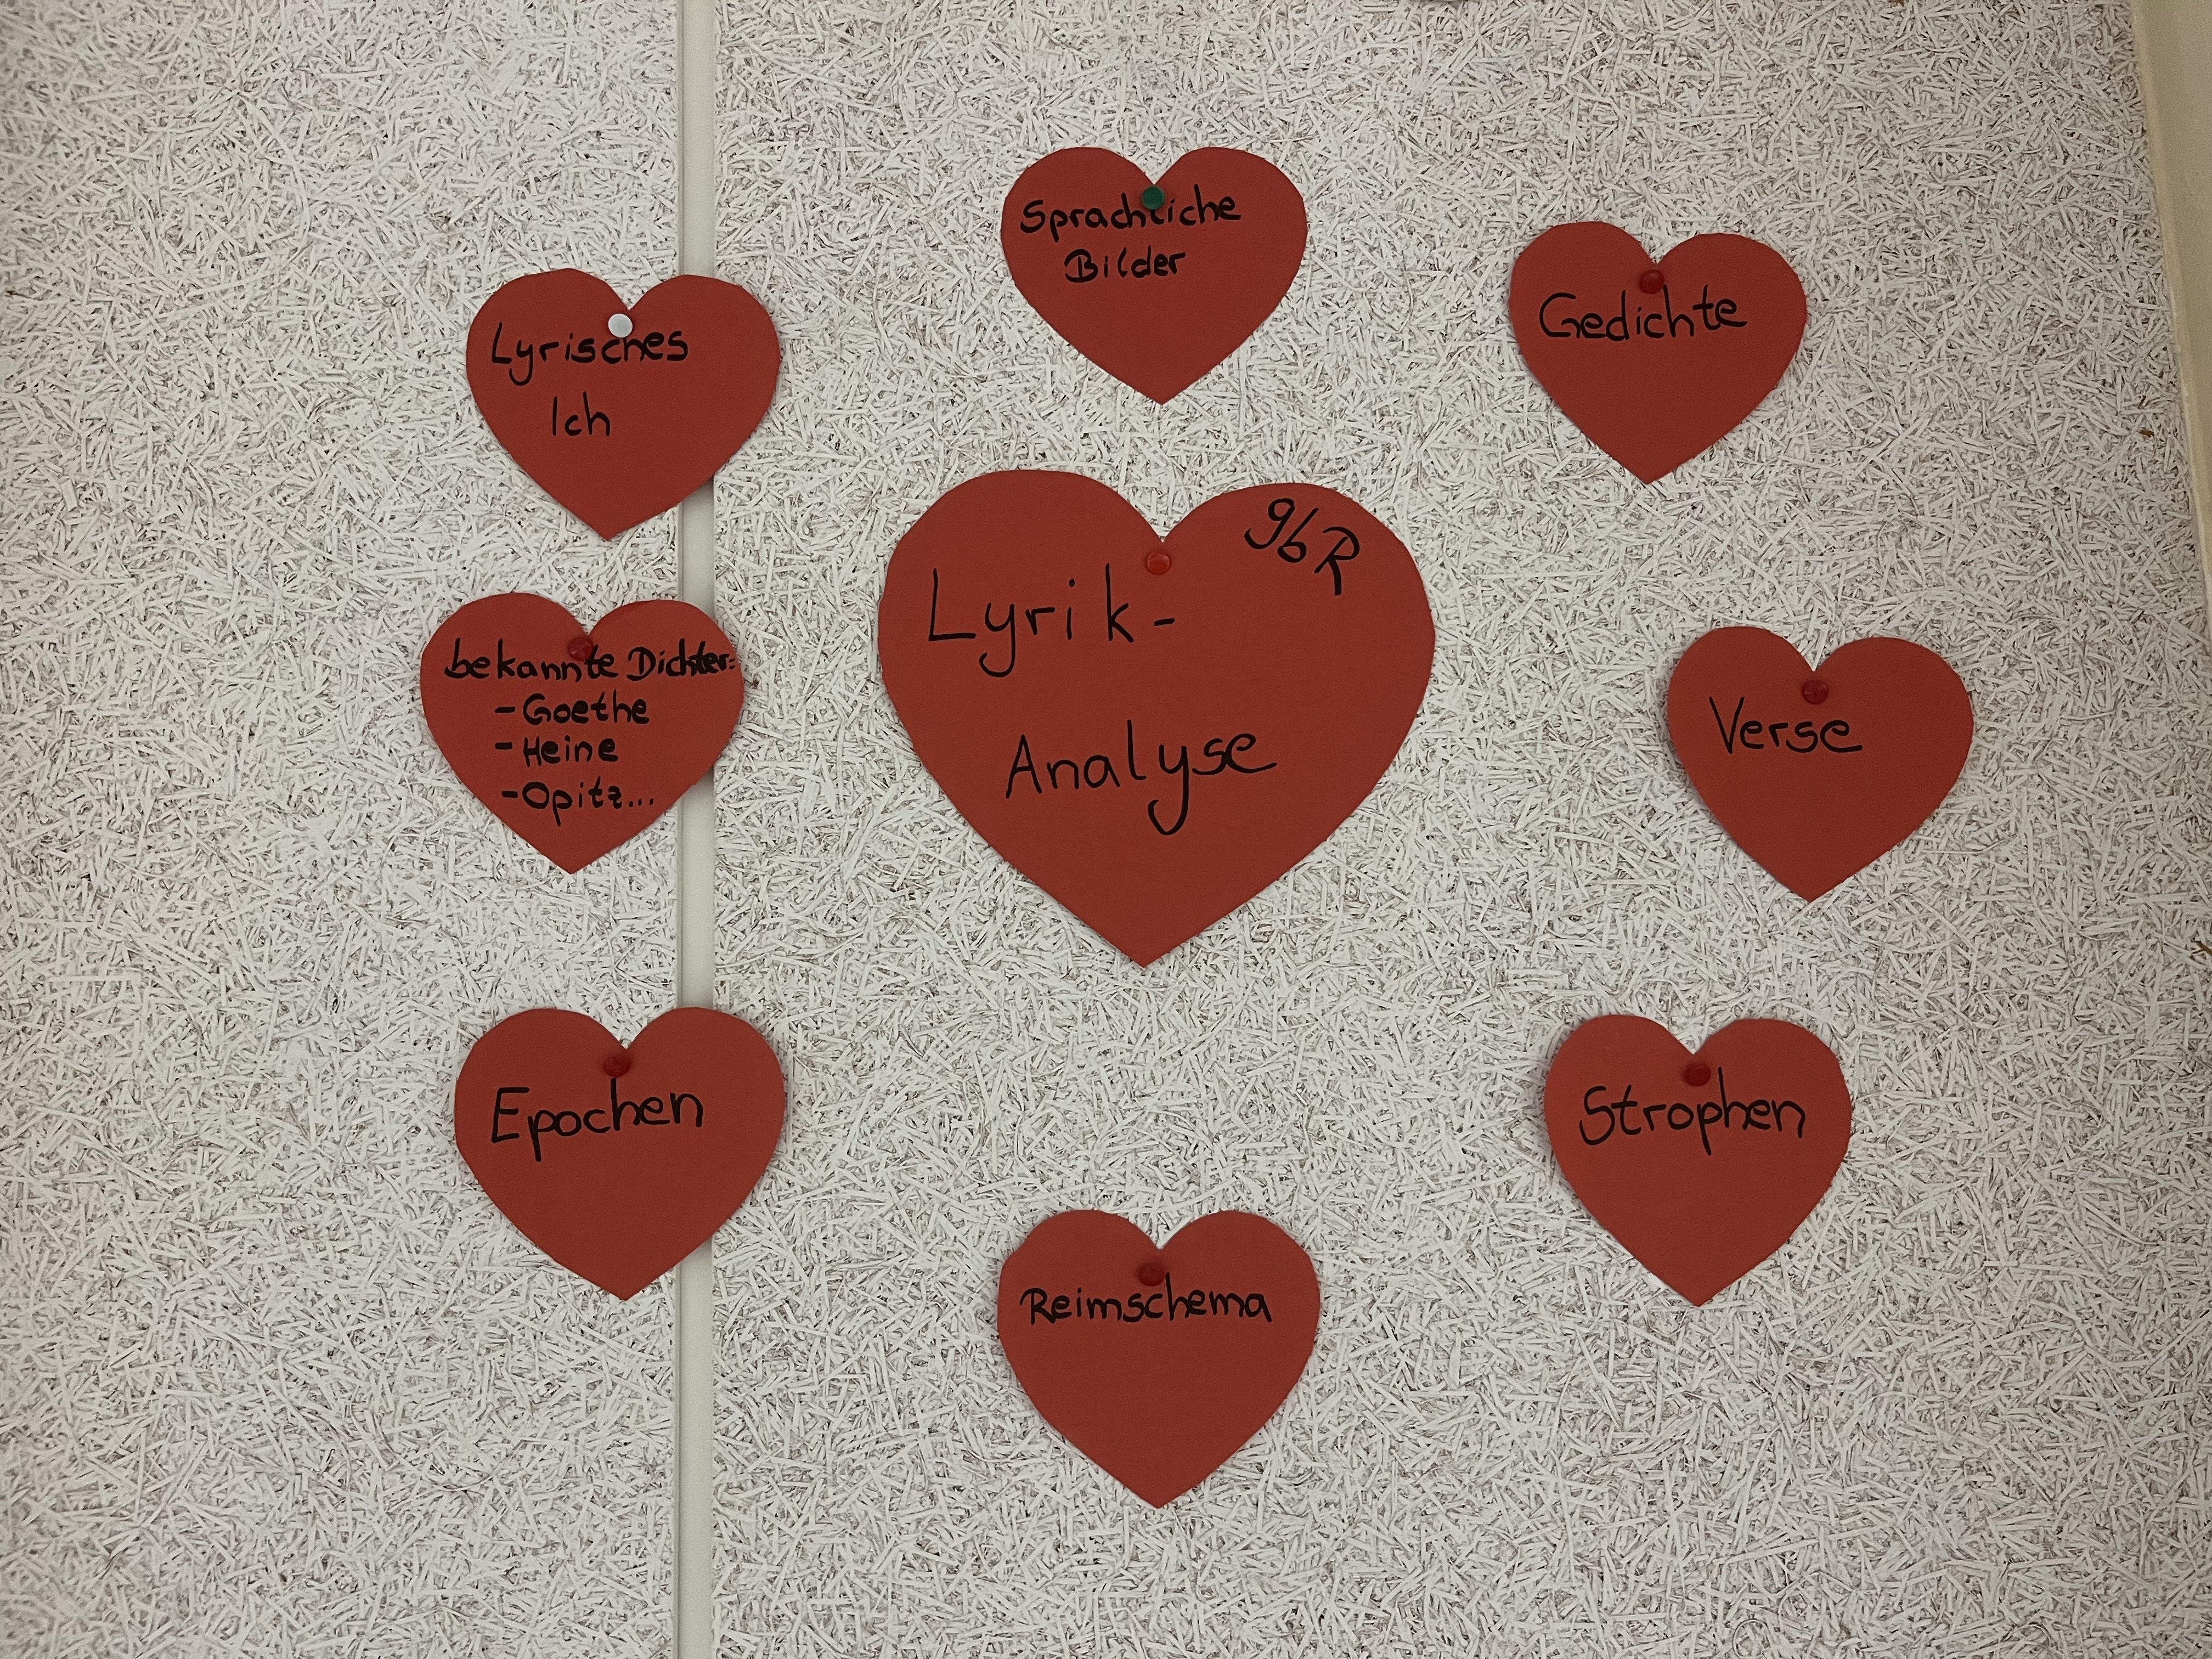 Sprachliche
Bilder
Gedichte
Lyrisches
Ich
9bR
Lyrik-
Analyse
bekannte Dichter:
- Goethe
- Heine
- Opitz...
Verse
Epochen
Strophen
Reimschema